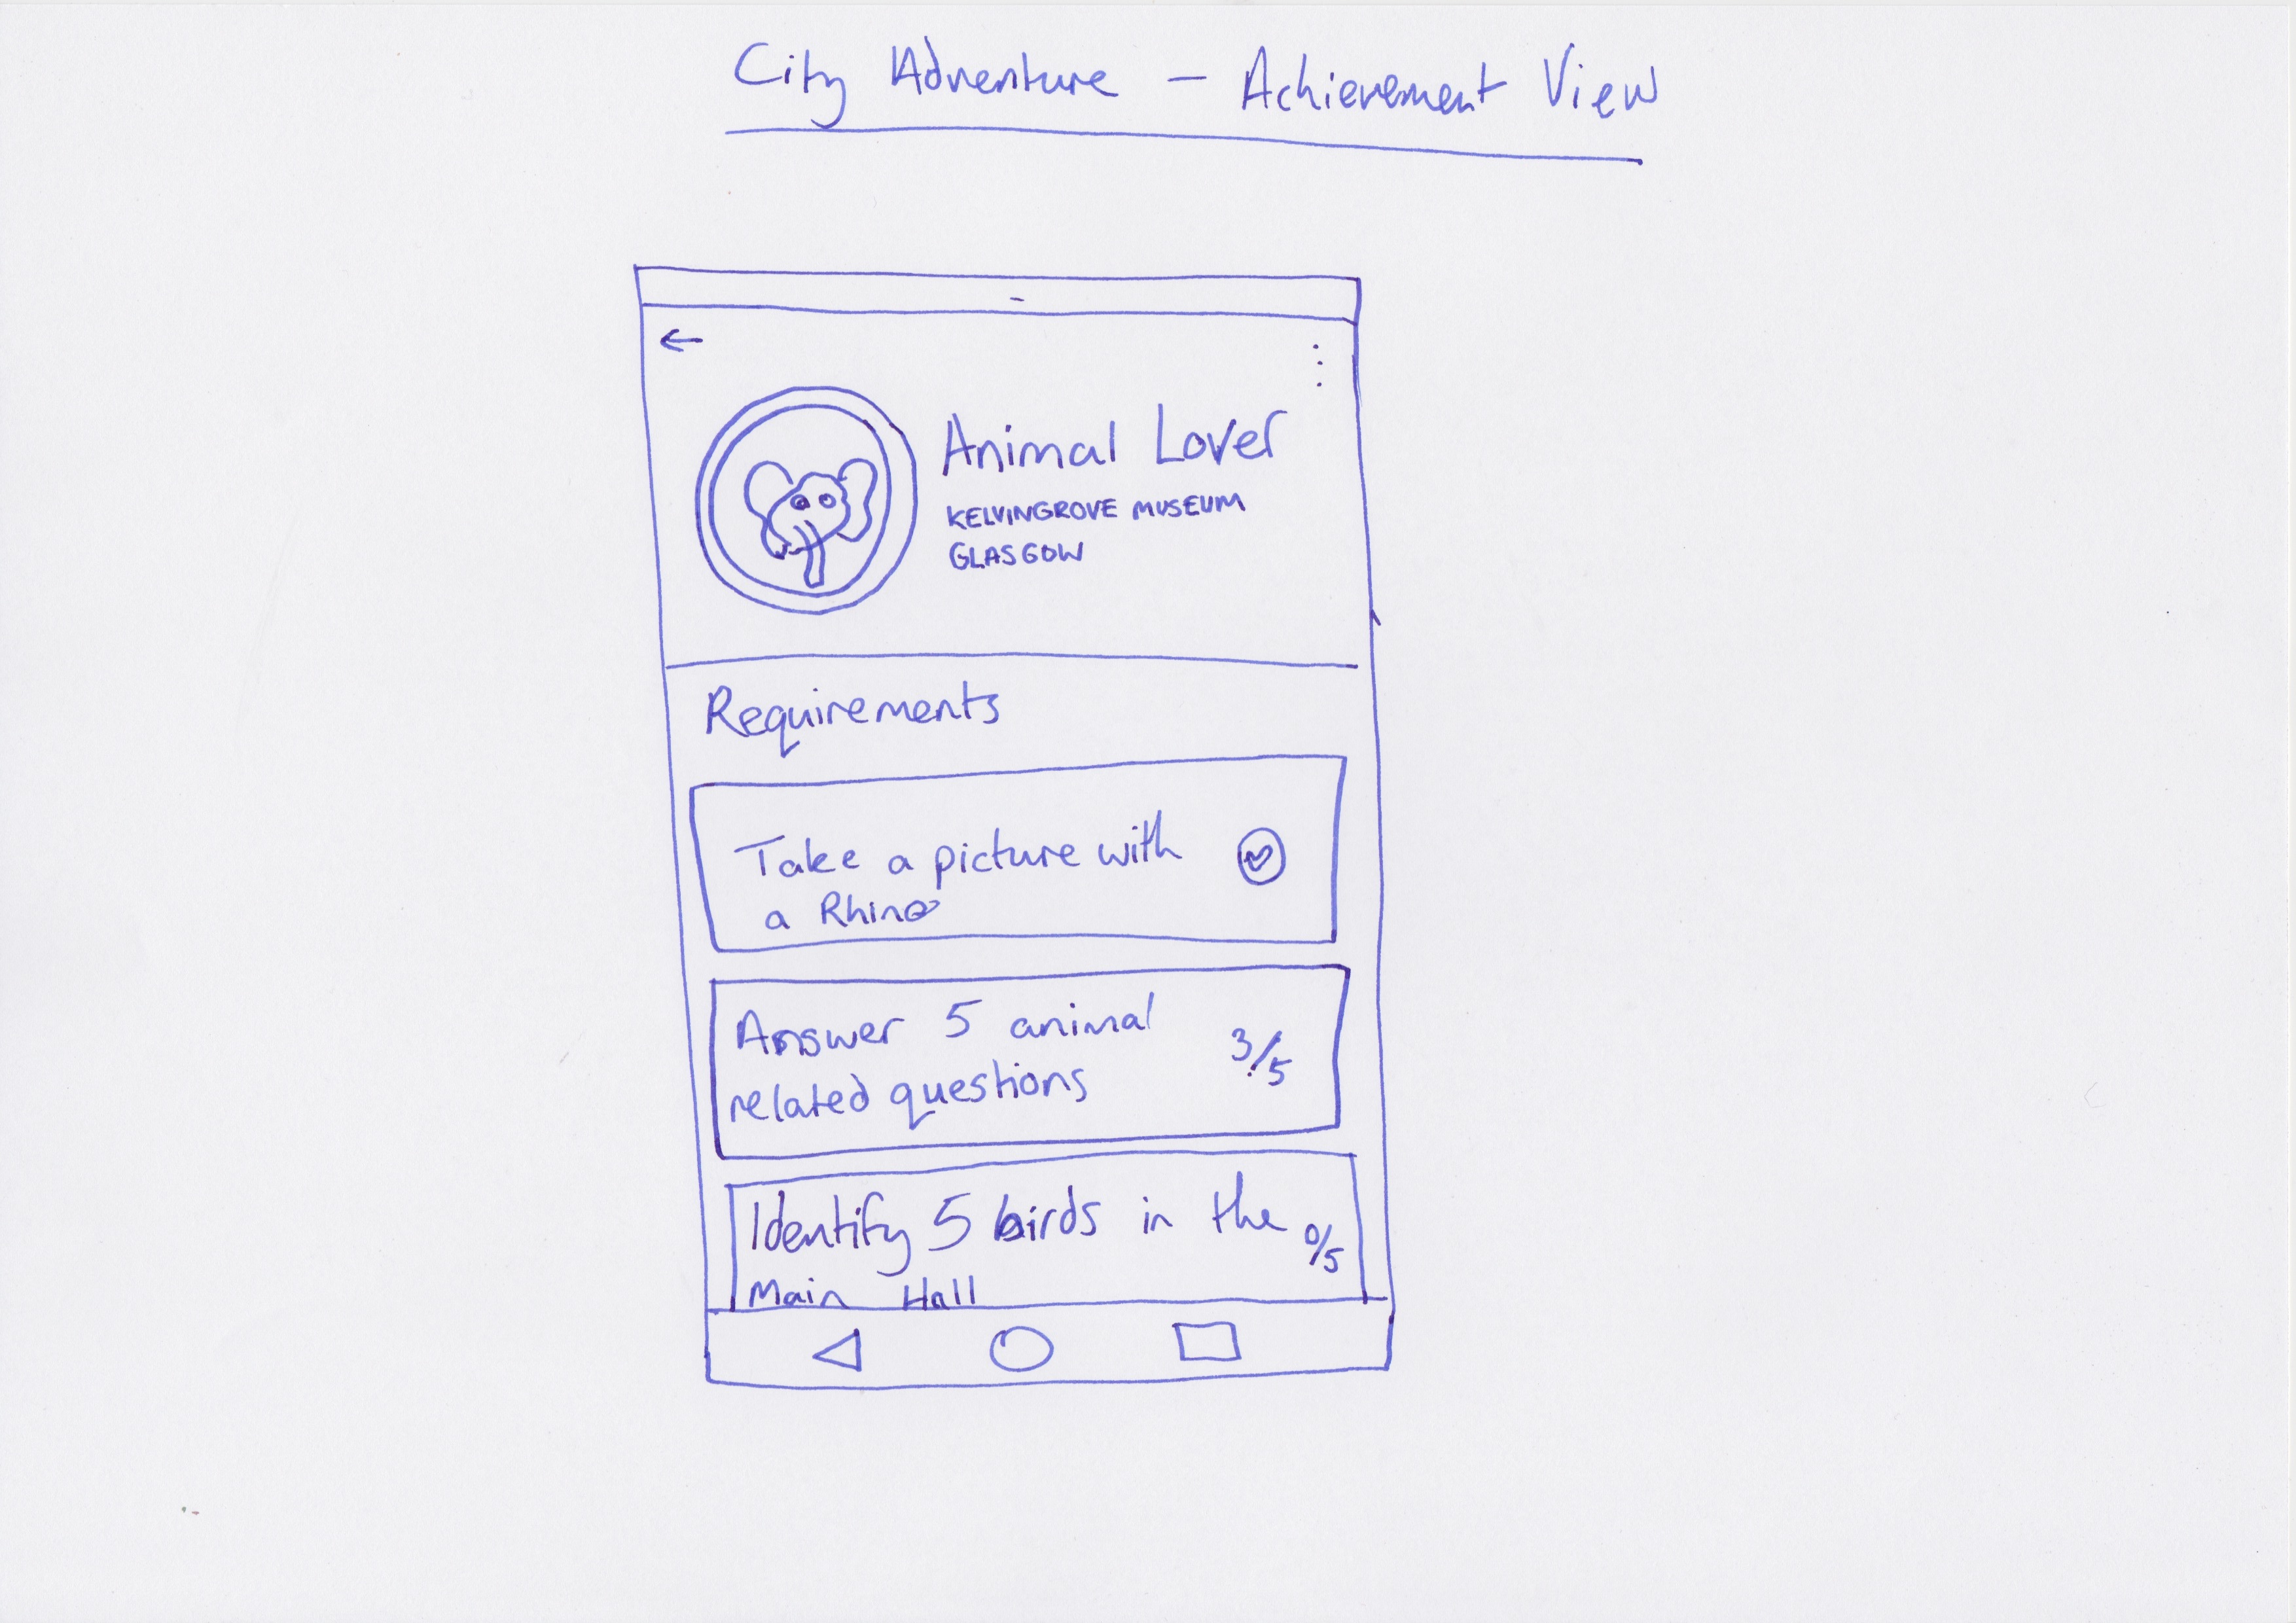 City Adventure - Achievement View
Animal Lover
KELVINGROVE MUSEUM
GLASGOW
Requirements
Take a picture with
a Rhino
Answer 5 animal
related questions
3/5
Identify 5 birds in the
0/5
Main Hall